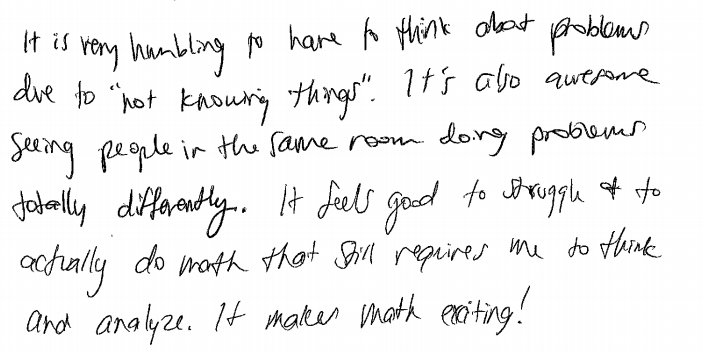 It is very humbling to have to think about problems
due to "not knowing things". It's also awesome
seeing people in the same room doing problems
totally differently. It feels good to struggle & to
actually do math that still requires me to think
and analyze. It makes math exciting!